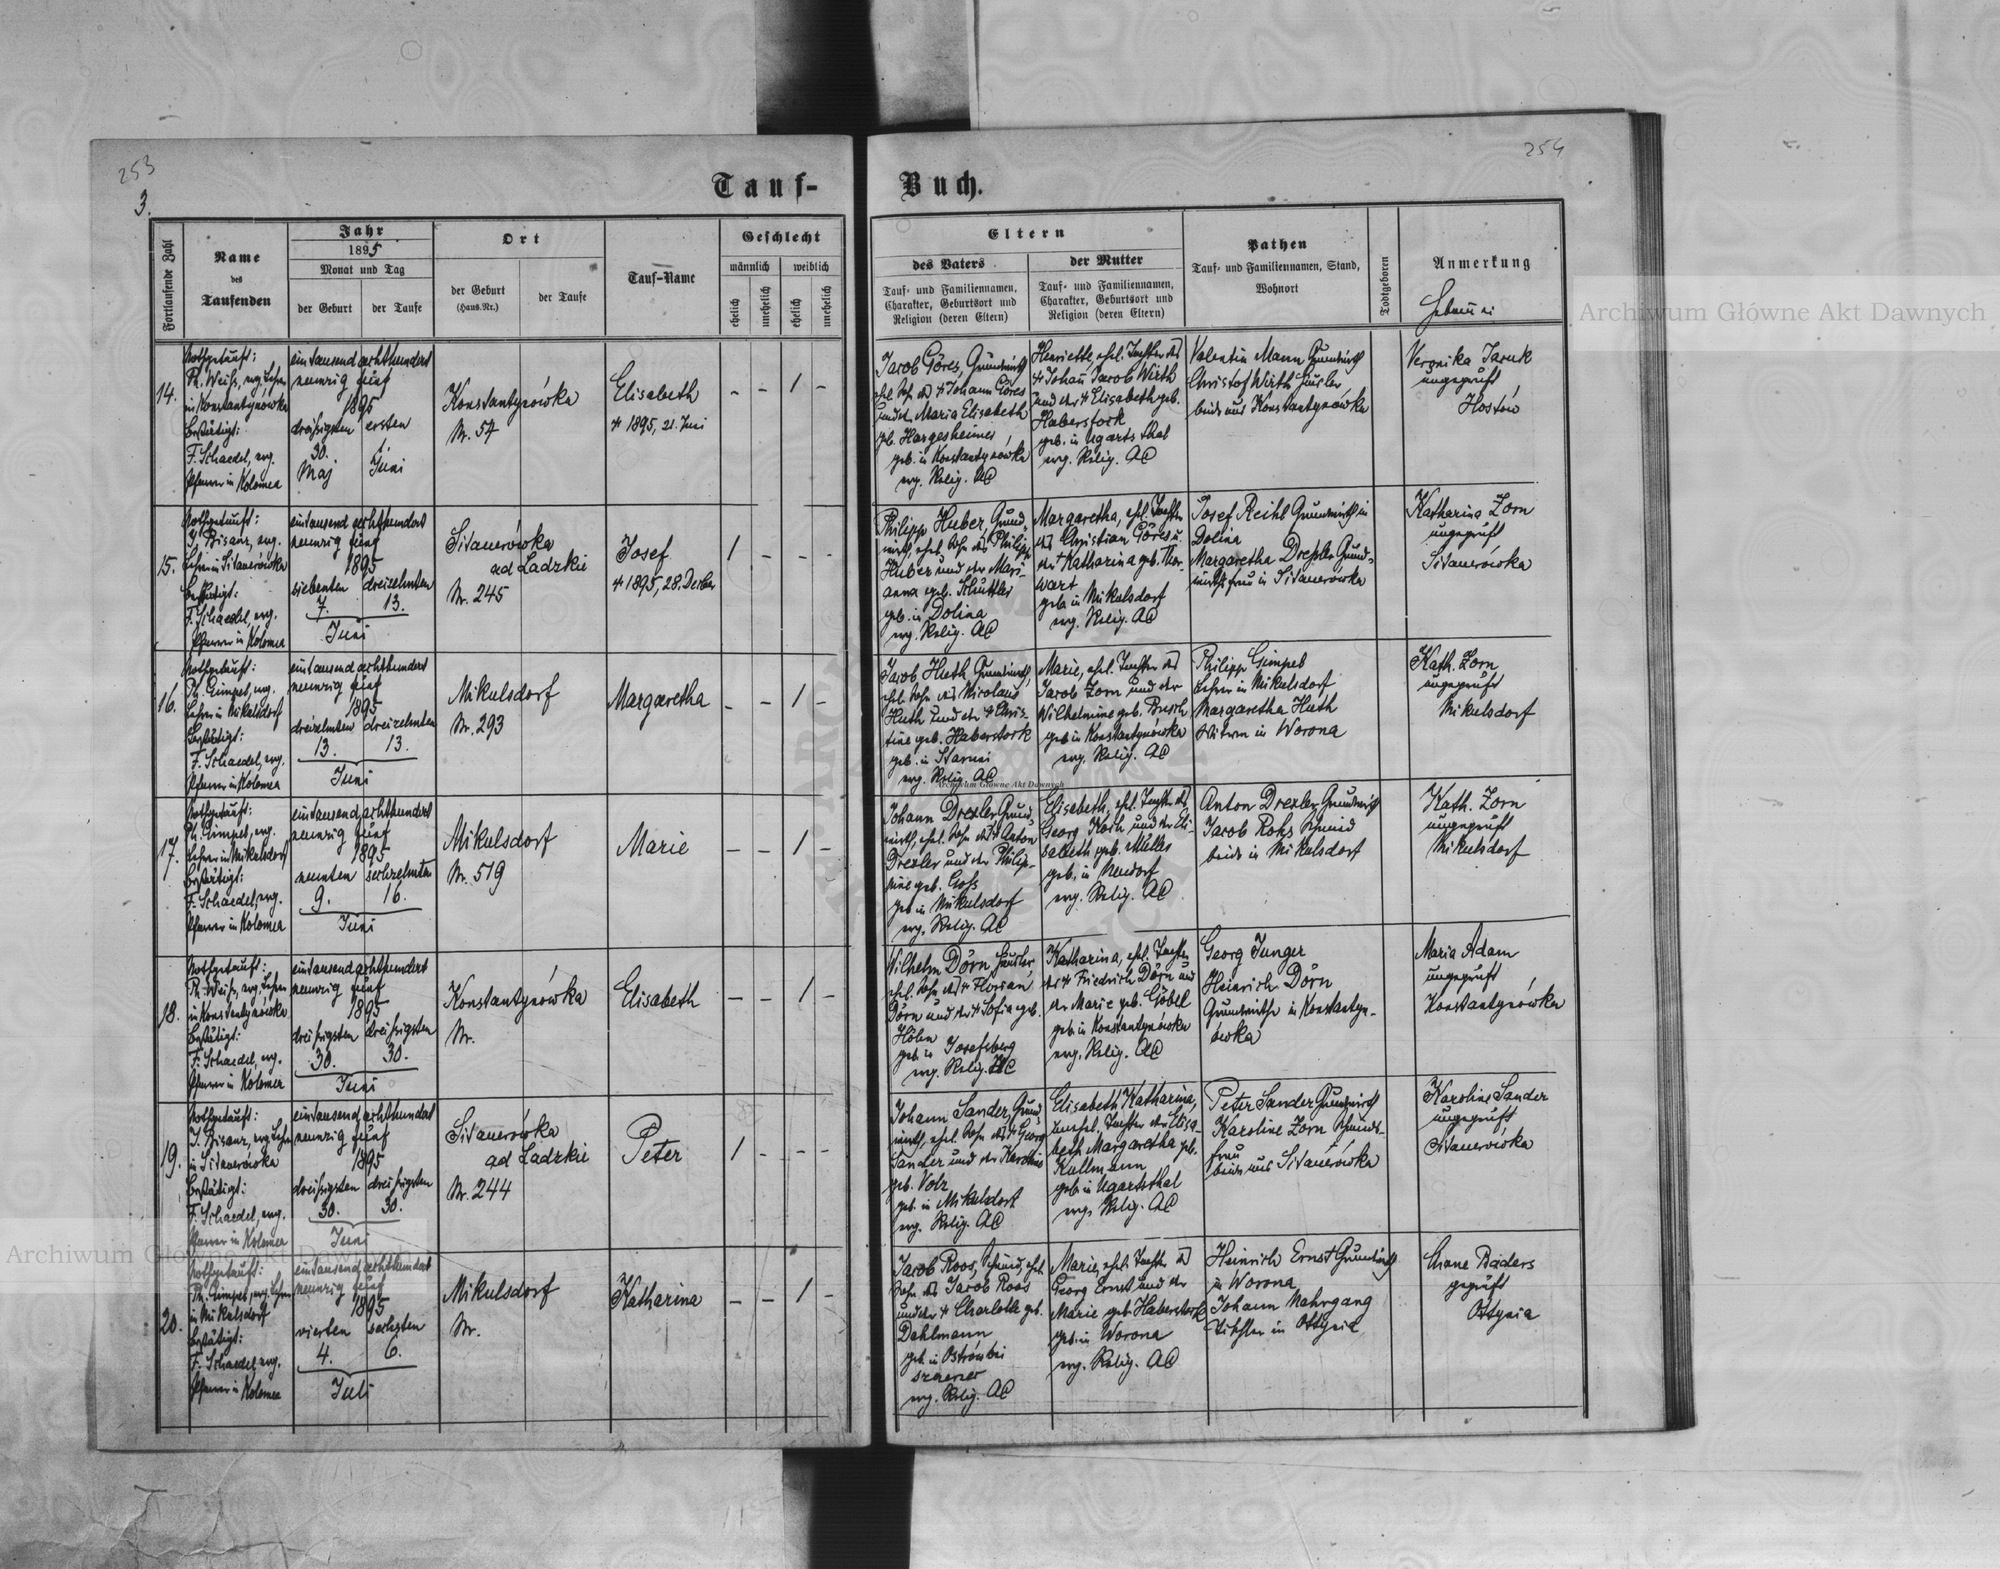 253
254
3.
Tauf-
Buch.
Fortlaufende Zahl
Name
des
Taufenden
Jahr
1895
Monat und Tag
der Geburt
der Taufe
Ort
der Geburt
(Haus-Nr.)
der Taufe
Tauf-Name
Geschlecht
männlich
weiblich
ehelich
unehelich
ehelich
unehelich
Eltern
des Vaters
Tauf- und Familiennamen,
Charakter, Geburtsort und
Religion (deren Eltern)
der Mutter
Tauf- und Familiennamen,
Charakter, Geburtsort und
Religion (deren Eltern)
Pathen
Tauf- und Familiennamen, Stand,
Wohnort
Todtgeboren
Anmerkung
14.
Nothgetauft:
Ph. Weiss, evg. Lehrer
in Konstantynówka
Bestätigt:
F. Schaedel, evg.
Pfarrer in Kolomea
eintausend achthundert
neunzig fünf
1895
dreißigsten ersten
30.
Maj Juni
Konstantynówka
Nr. 57
Elisabeth
† 1895, 21. Juni
- - 1 -
Jacob Göres, Grundwirth
ehl. Sohn des † Johann Göres
und der Maria Elisabeth
geb. Hargesheimer
geb. in Konstantynówka
evg. Relig. AC
Henriette, ehl. Tochter des
† Johann Jacob Wirth
und der † Elisabeth geb.
Haberstock
geb. in Ugartsthal
evg. Relig. AC
Valentin Mann Grundwirth
Christof Wirth Häusler
beide aus Konstantynówka
Veronika Jaruk
ungeprüft
Hostów
15.
Nothgetauft:
J. Bisanz, evg.
Lehrer in Sitauerówka
Bestätigt:
F. Schaedel, evg.
Pfarrer in Kolomea
eintausend achthundert
neunzig fünf
1895
siebenten dreizehnten
7. 13.
Juni
Sitauerówka
ad Ladzkie
Nr. 245
Josef
† 1895, 28.
1 - - -
Philipp Huber, Grund-
wirth, ehel. Sohn des Philipp
Huber und der Mari-
anna geb. Schuttler
geb. in Dolina
evg. Relig. AC
Margaretha, ehl. Tochter
des Christian Göres u.
der † Katharina geb.
geb. in Mikulsdorf
evg. Relig. AC
Josef Reihl Grundwirth in
Dolina
Margaretha Drexler Grund-
wirthsfrau in Sitauerówka
Katharina Zorn
ungeprüft
Sitauerówka
16.
Nothgetauft:
Ph. Gimpel, evg.
Lehrer in Mikulsdorf
Bestätigt:
F. Schaedel, evg.
Pfarrer in Kolomea
eintausend achthundert
neunzig fünf
1895
dreizehnten dreizehnten
13. 13.
Juni
Mikulsdorf
Nr. 293
Margaretha
- - 1 -
Jacob Huth Grundwirth,
ehl. Sohn des Nicolaus
Huth und der † Chris-
tine geb. Haberstock
geb. in Starnei
evg. Relig. AC
Marie, ehl. Tochter des
Jacob Zorn und der
Wilhelmine geb. Busch
geb. in Konstantynówka
evg. Relig. AC
Philipp Gimpel
Lehrer in Mikulsdorf
Margaretha Huth
Witwe in Worona
Kath. Zorn
ungeprüft
Mikulsdorf
17.
Nothgetauft:
Ph. Gimpel, evg.
Lehrer in Mikulsdorf
Bestätigt:
F. Schaedel, evg.
Pfarrer in Kolomea
eintausend achthundert
neunzig fünf
1895
neunten sechzehnten
9. 16.
Juni
Mikulsdorf
Nr. 579
Marie
- - 1 -
Johann Drexler Grund-
wirth, ehel. Sohn des † Anton
Drexler und der Philip-
pine geb. Goss
geb. in Mikulsdorf
evg. Relig. AC
Elisabeth, ehl. Tochter des
Georg Koch und der Eli-
sabeth geb. Müller
geb. in Neudorf
evg. Relig. AC
Anton Drexler Grundwirth
Jacob Rohs Schmid
beide in Mikulsdorf
Kath. Zorn
ungeprüft
Mikulsdorf
18.
Nothgetauft:
Ph. Weiss, evg. Lehrer
in Konstantynówka
Bestätigt:
F. Schaedel, evg.
Pfarrer in Kolomea
eintausend achthundert
neunzig fünf
1895
dreißigsten dreißigsten
30. 30.
Juni
Konstantynówka
Nr.
Elisabeth
- - 1 -
Wilhelm Dörn Häusler
ehl. Sohn des † Florian
Dörn und der † Sofia geb.
Höhn
geb. in Josefsberg
evg. Relig.
Katharina, ehl. Tochter
des † Friedrich Dörn und
der Marie geb. Göbel
geb. in Konstantynówka
evg. Relig. AC
Georg Junger
Heinrich Dörn
Grundwirthe in Konstantyn-
ówka
Maria Adam
ungeprüft
Konstantynówka
19.
Nothgetauft:
J. Bisanz, evg. Lehrer
in Sitauerówka
Bestätigt:
F. Schaedel, evg.
Pfarrer in Kolomea
eintausend achthundert
neunzig fünf
1895
dreißigsten dreißigsten
30. 30.
Juni
Sitauerówka
ad Ladzkie
Nr. 244
Peter
1 - - -
Johann Sander, Grund-
wirth, ehel. Sohn des † Georg
Sander und der Karoline
geb. Volz
geb. in Mikulsdorf
evg. Relig. AC
Elisabeth Katharina,
unehel. Tochter der Elisa-
beth Margaretha geb.
Kullmann
geb. in Ugartsthal
evg. Relig. AC
Peter Sander Grundwirth
Karoline Zorn Schmids-
frau
beide aus Sitauerówka
Karoline Sander
ungeprüft
Sitauerówka
20.
Nothgetauft:
Ph. Gimpel, evg. Lehrer
in Mikulsdorf
Bestätigt:
F. Schaedel, evg.
Pfarrer in Kolomea
eintausend achthundert
neunzig fünf
1895
vierten sechsten
4. 6.
Juli
Mikulsdorf
Nr.
Katharina
- - 1 -
Jacob Roos, Schmid, ehel.
Sohn des Jacob Roos
und der † Charlotte geb.
Dahlmann
geb. in
evg. Relig. AC
Marie, ehl. Tochter des
Georg Ernst und der
Marie geb. Haberstock
geb. in Worona
evg. Relig. AC
Heinrich Ernst Grundwirth
in Worona
Johann Nahrgang
Tischler in Ottynia
Chane Baders
geprüft
Ottynia
Archiwum Główne Akt Dawnych
Archiwum Główne Akt Dawnych
Archiwum Główne Akt Dawnych